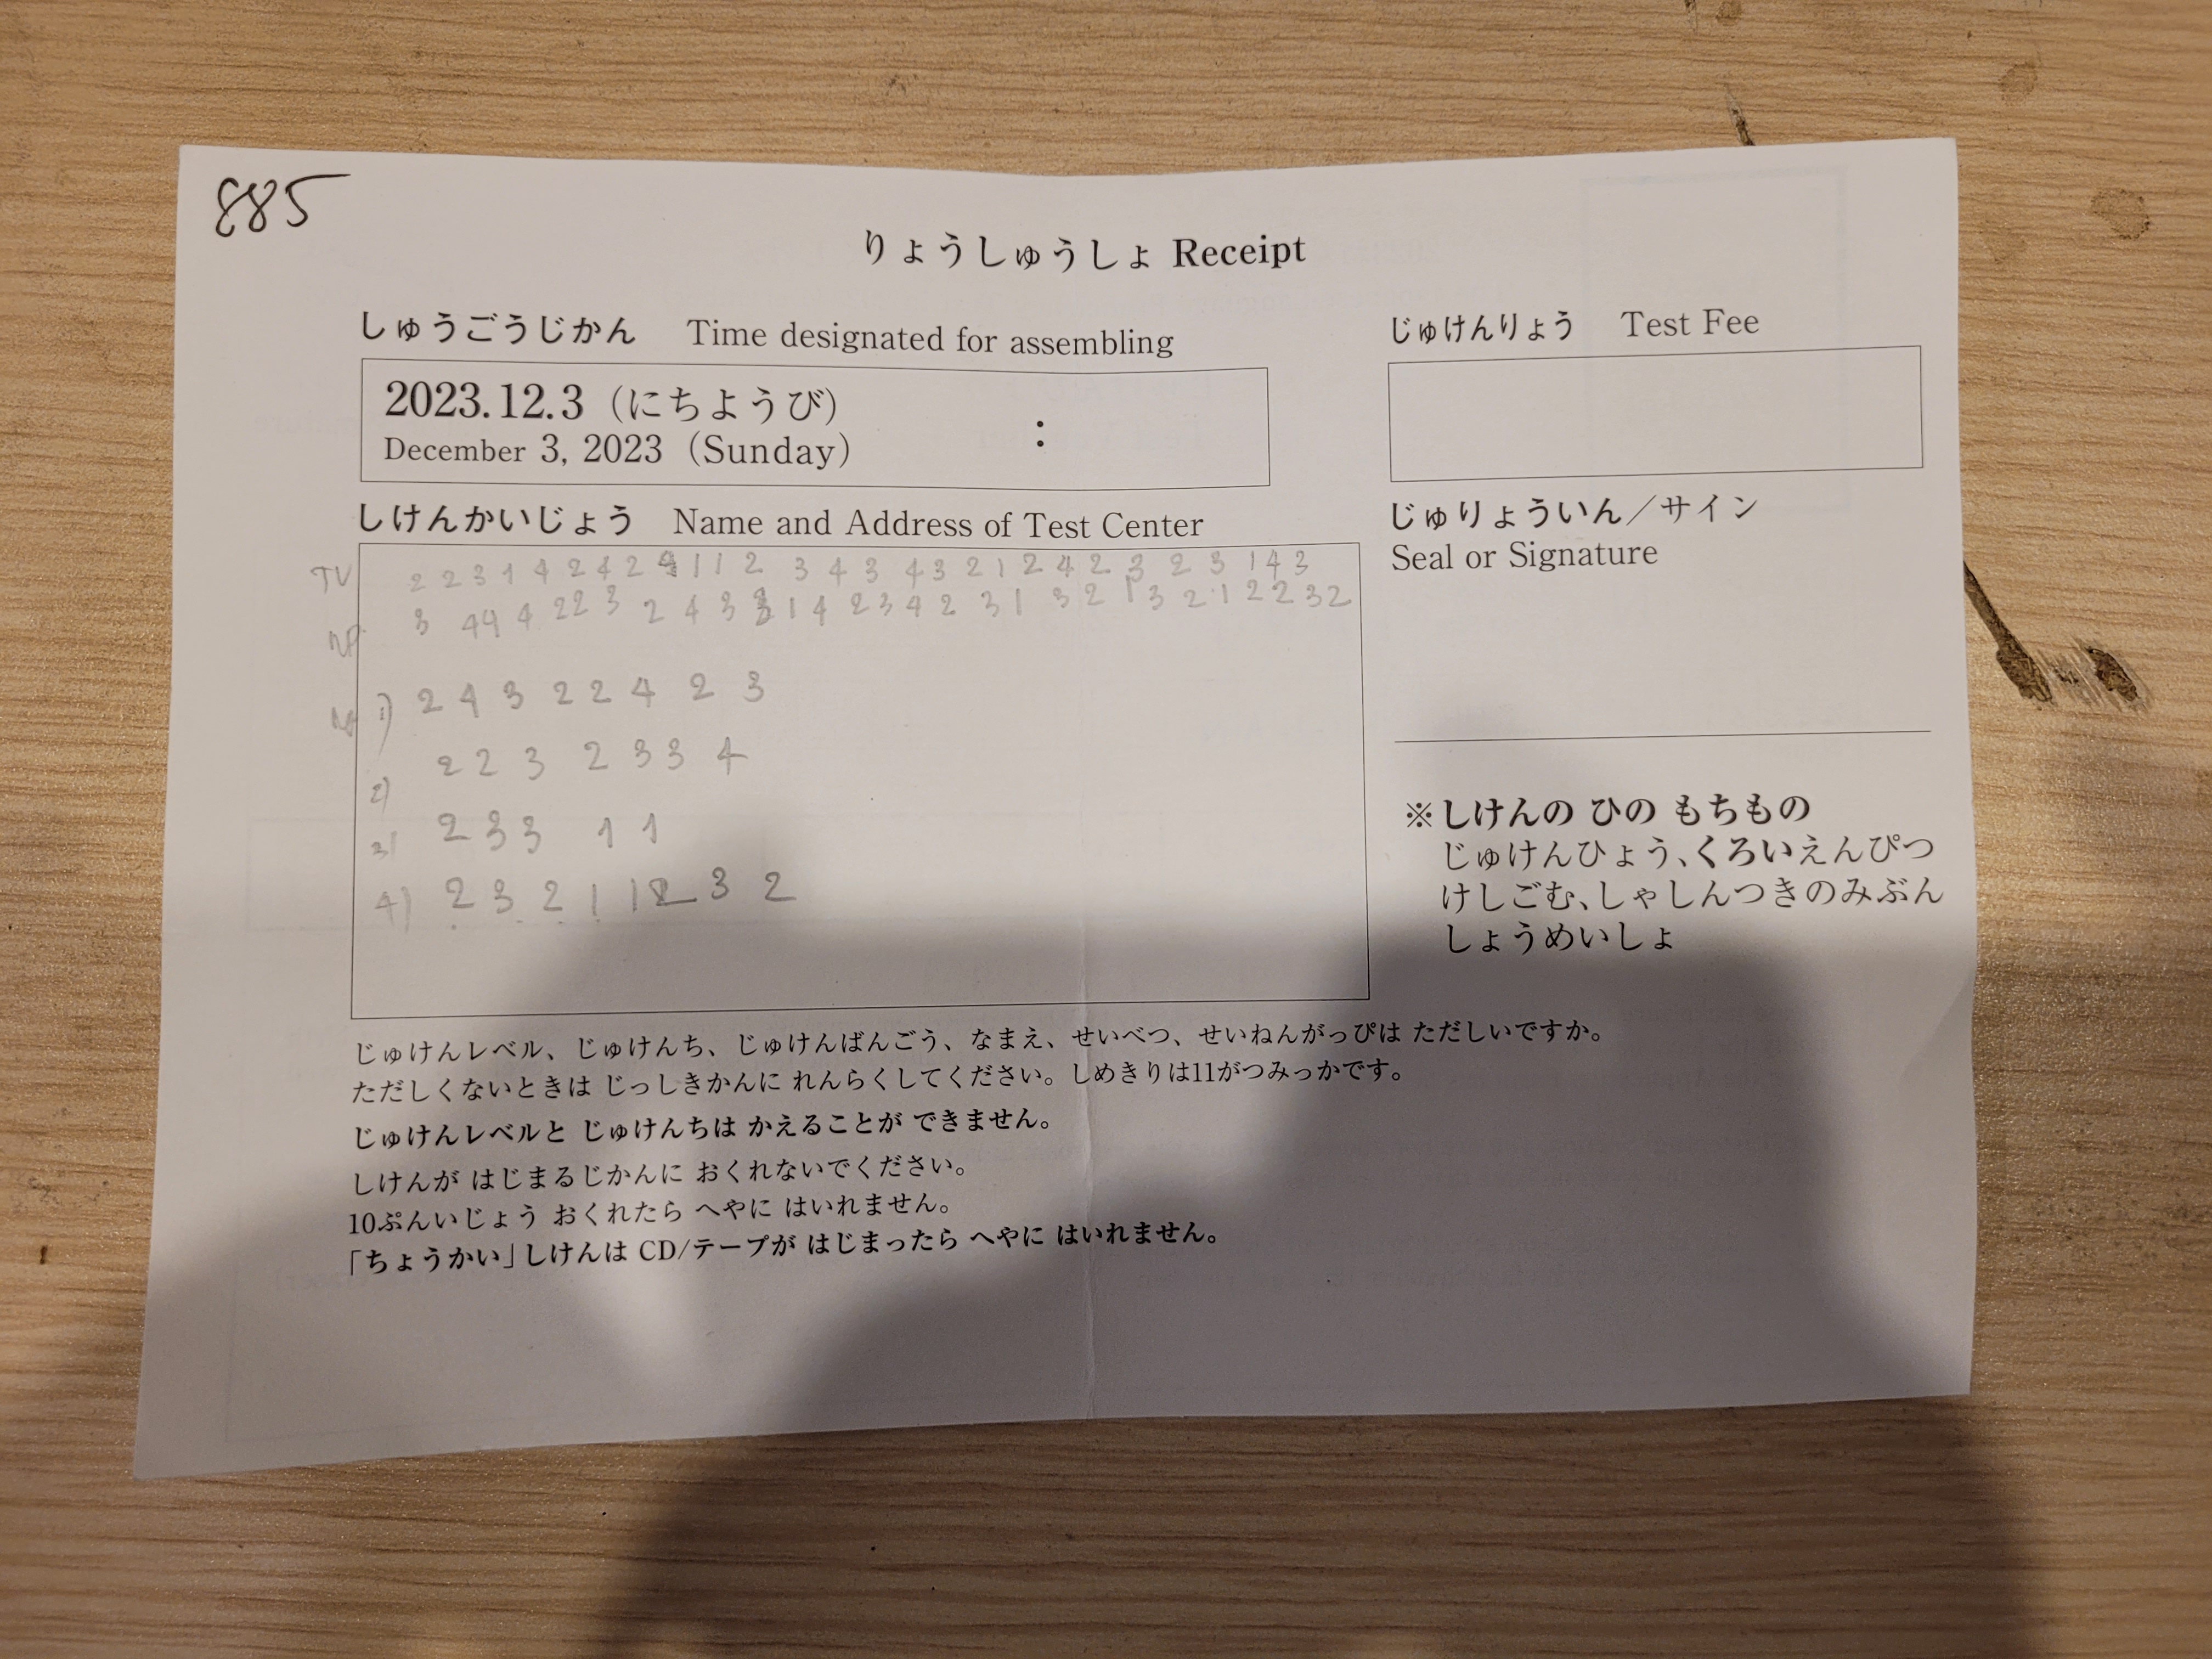 885
りょうしゅうしょ Receipt
しゅうごうじかん Time designated for assembling
2023.12.3（にちようび）
December 3, 2023（Sunday） :
じゅけんりょう Test Fee
しけんかいじょう Name and Address of Test Center
TV 2 2 3 1 4 2 4 2 4 1 1 2 3 4 3 4 3 2 1 2 4 2 3 2 3 1 4 3
3 4 4 4 2 2 3 2 4 3 3 1 4 2 3 4 2 3 1 3 2 1 3 2 1 2 2 3 2
1) 2 4 3 2 2 4 2 3
2) 2 2 3 2 3 3 4
3) 2 3 3 1 1
4) 2 3 2 1 1 2 3 2
じゅりょういん／サイン
Seal or Signature
※しけんの ひの もちもの
じゅけんひょう、くろいえんぴつ
けしごむ、しゃしんつきのみぶん
しょうめいしょ
じゅけんレベル、じゅけんち、じゅけんばんごう、なまえ、せいべつ、せいねんがっぴは ただしいですか。
ただしくないときは じっしきかんに れんらくしてください。しめきりは11がつみっかです。
じゅけんレベルと じゅけんちは かえることが できません。
しけんが はじまるじかんに おくれないでください。
10ぷんいじょう おくれたら へやに はいれません。
「ちょうかい」しけんは CD/テープが はじまったら へやに はいれません。